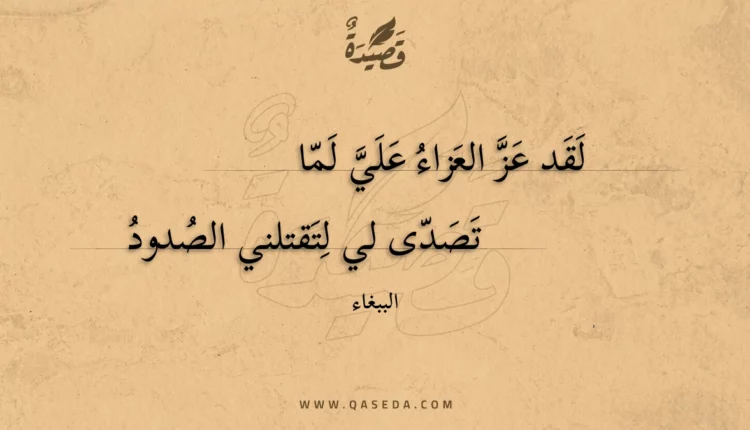 قَصِيْدَةٌ
لَقَد عَزَّ العَزاءُ عَلَيَّ لَمّا
تَصَدّى لي لِتَقتلني الصُدودُ
الببغاء
WWW.QASEDA.COM